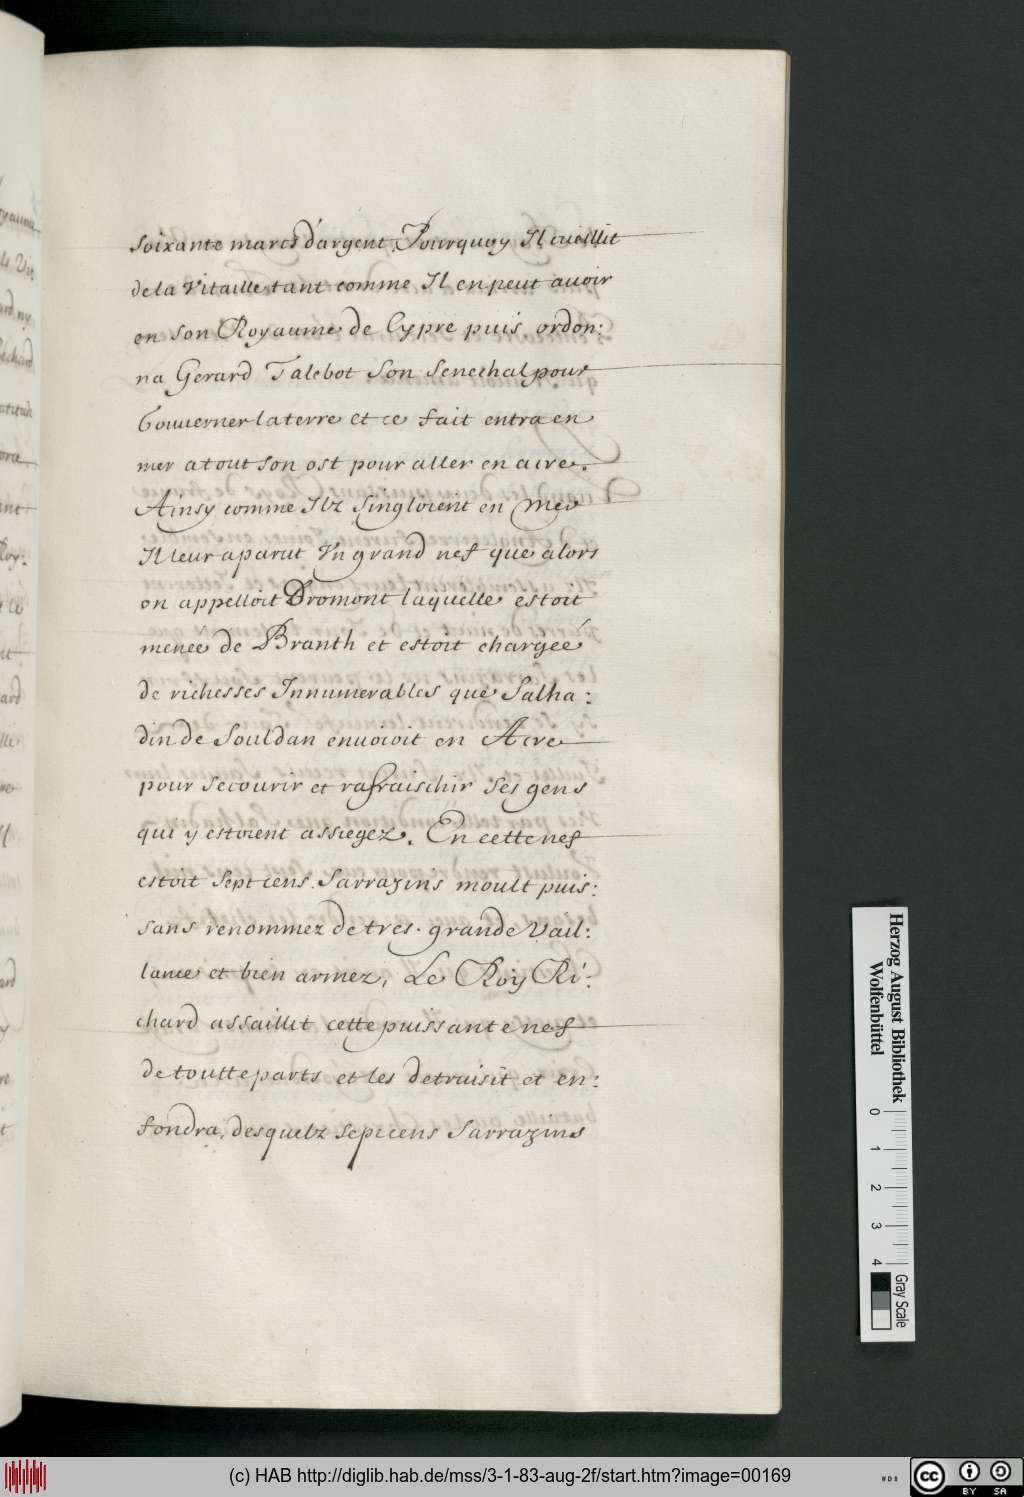 soixante marcs d'argent, Pourquoy Il cueillit
de la vitaille tant comme Il en peut avoir
en son Royaume de Cypre puis ordon:
na Gerard Talebot Son Senechal pour
Gouverner la terre et ce fait entra en
mer a tout son ost pour aller en acre.
Ainsy comme Ilz Singloient en Mer
Il leur aparut Un grand nef que alors
on appelloit Dromont laquelle estoit
menée de Branth et estoit chargeé
de richesses Innumerables que Salha:
din de Souldan envoioit en Acre
pour secourir et rafraischir ses gens
qui y estoient assiegez. En cette nef
estoit Sept cens Sarrazins moult puis:
sans renommez de tres grande Vail:
lance et bien armez, Le Roy Ri:
chard assaillit cette puissante nef
de toutte parts et les detruisit et en:
fondra, desquelz sept cens Sarrazins
Herzog August Bibliothek
Wolfenbüttel
0 1 2 3 4
Gray Scale
(c) HAB http://diglib.hab.de/mss/3-1-83-aug-2f/start.htm?image=00169
WDB
cc BY SA